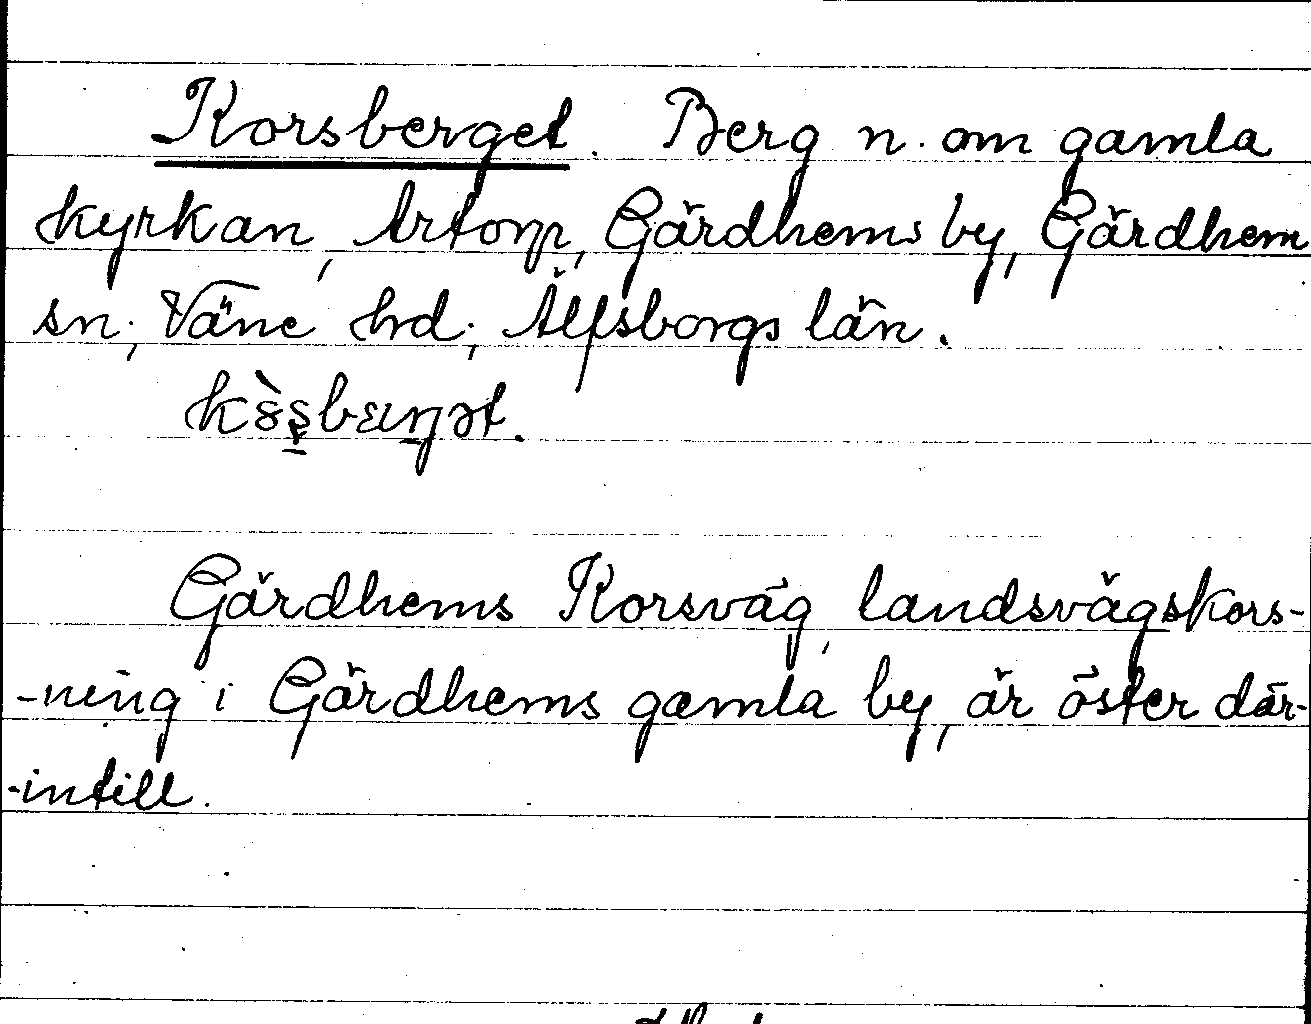 Korsberget. Berg n. om gamla
kyrkan, Artorp, Gärdhems by, Gärdhem
sn, Väne hrd, Älfsborgs län.
Gärdhems Korsväg, landsvägskors-
-ning i Gärdhems gamla by, är öster där-
-intill.